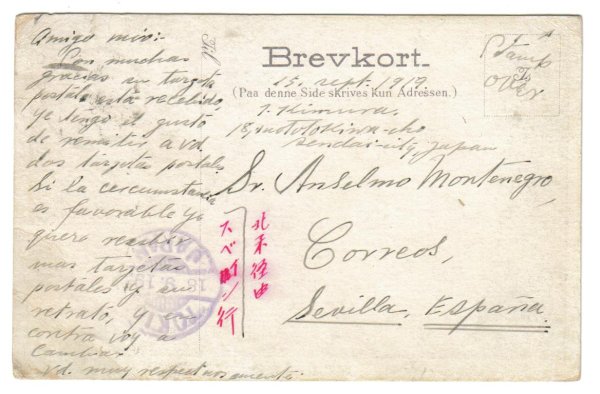 Amigo mio:-
Con muchas
gracias su targeta
postal está recibido,
yo tengo el gusto
de remitir a vd.
dos targetas postales.
Si la circumstancia
es favorable yo
quiero recibir
mas targetas
postales y su
retrato, y en
contra voy a
cambiar.
Vd. muy respetuosamente.
Til
Brevkort.
15, sept. 1919.
(Paa denne Side skrives kun Adressen.)
I. Kimura.
Sendai-city, Japan
Stamp
over
Sr. Anselmo Montenegro,
Correos,
Sevilla, España.
北米経由
スペイン行